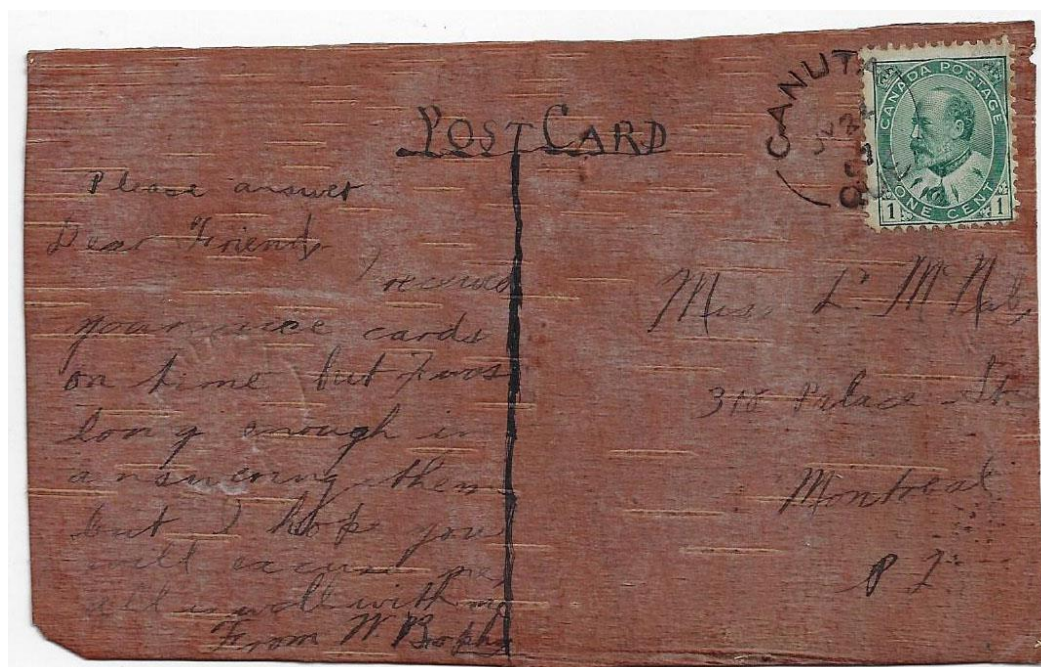 POST CARD
CANUT
QUE
CANADA POSTAGE
ONE CENT
1 1
Please answer
Dear Friend
I received
your nice cards
on time but I was
long enough in
answering them
but I hope you
will excuse me
all is well with me
From W Brophy
Miss L. McNab
318 Palace St.
Montreal
P